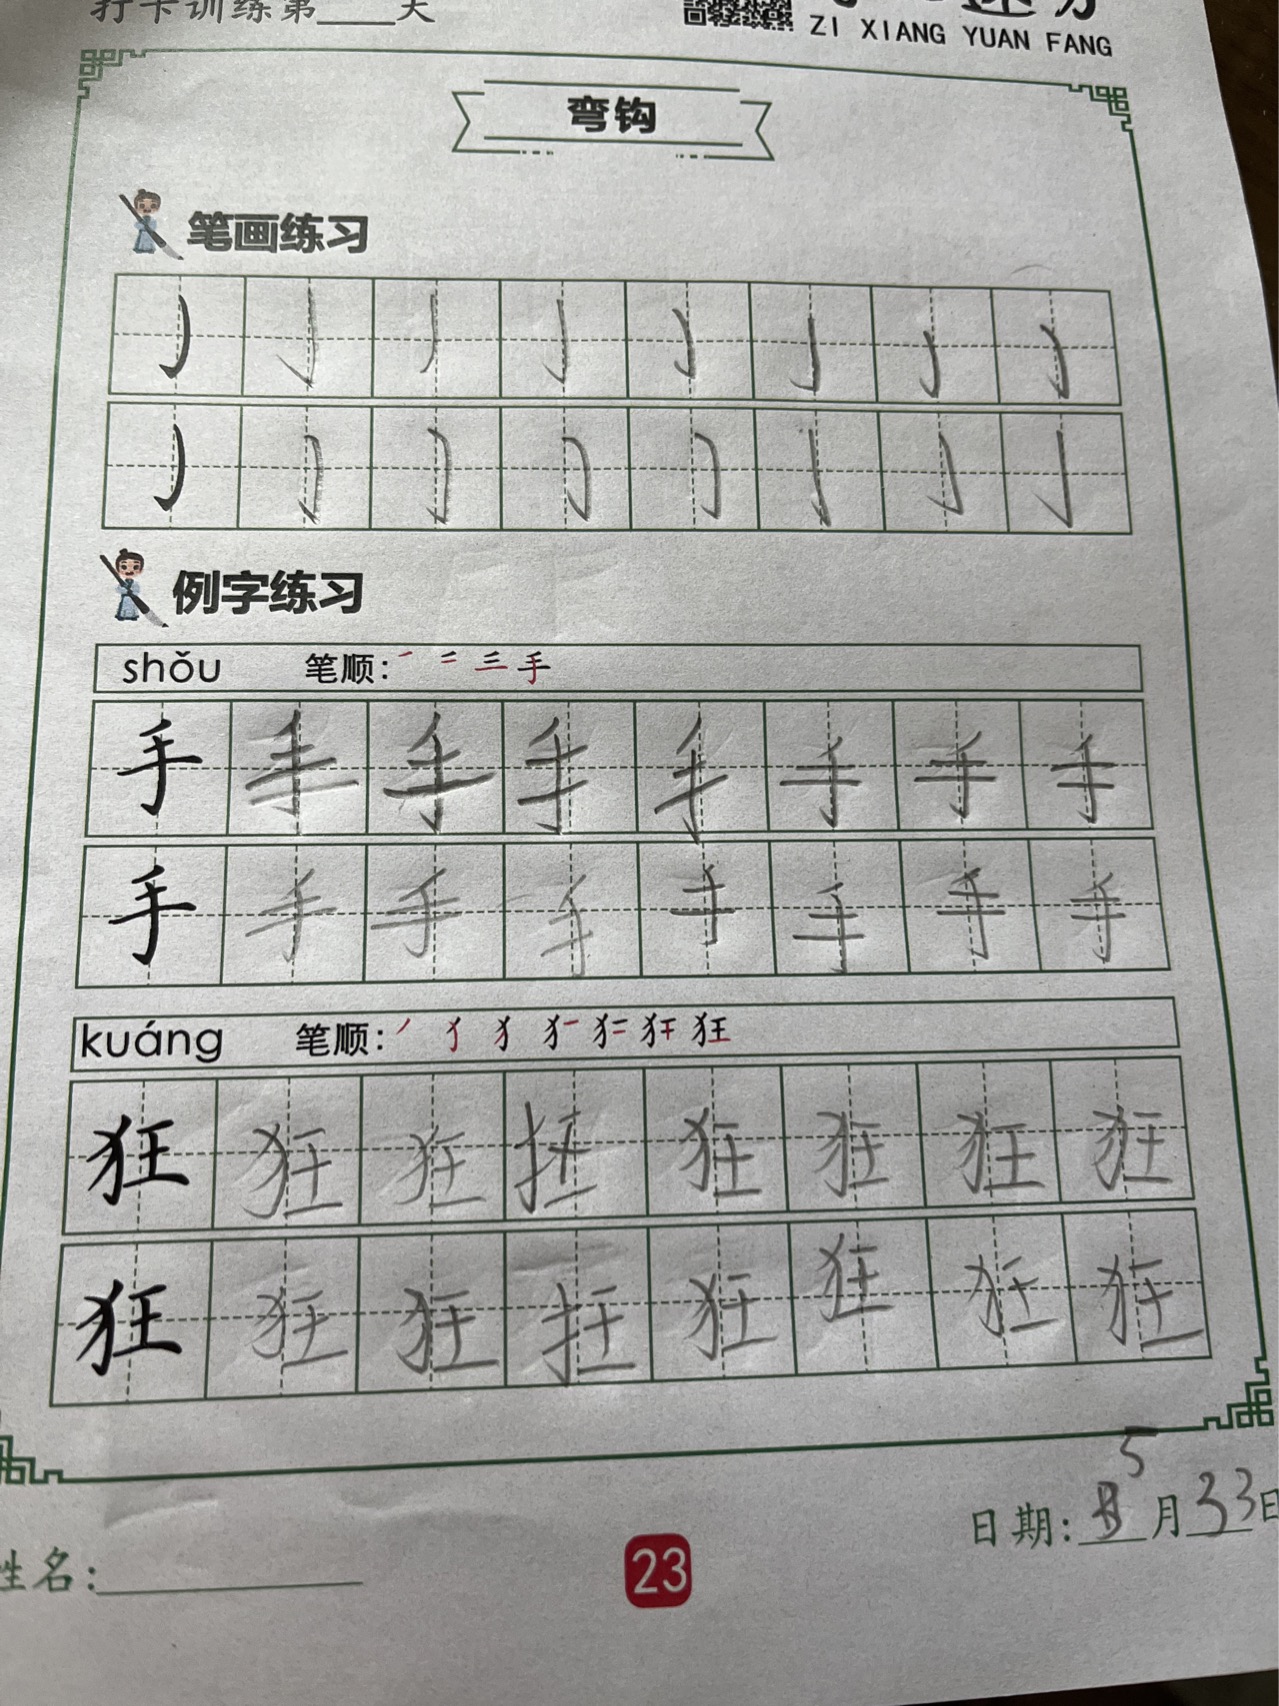 打卡训练第____天
ZI XIANG YUAN FANG
弯钩
笔画练习
例字练习
shǒu 笔顺: 一 二 三 手
手 手 手 手 手 手 手 手
手 手 手 手 手 手 手 手
kuáng 笔顺: 丿 犭 狂
狂 狂 狂 狂 狂 狂 狂 狂
狂 狂 狂 狂 狂 狂 狂 狂
日期: 5月33日
姓名:
23